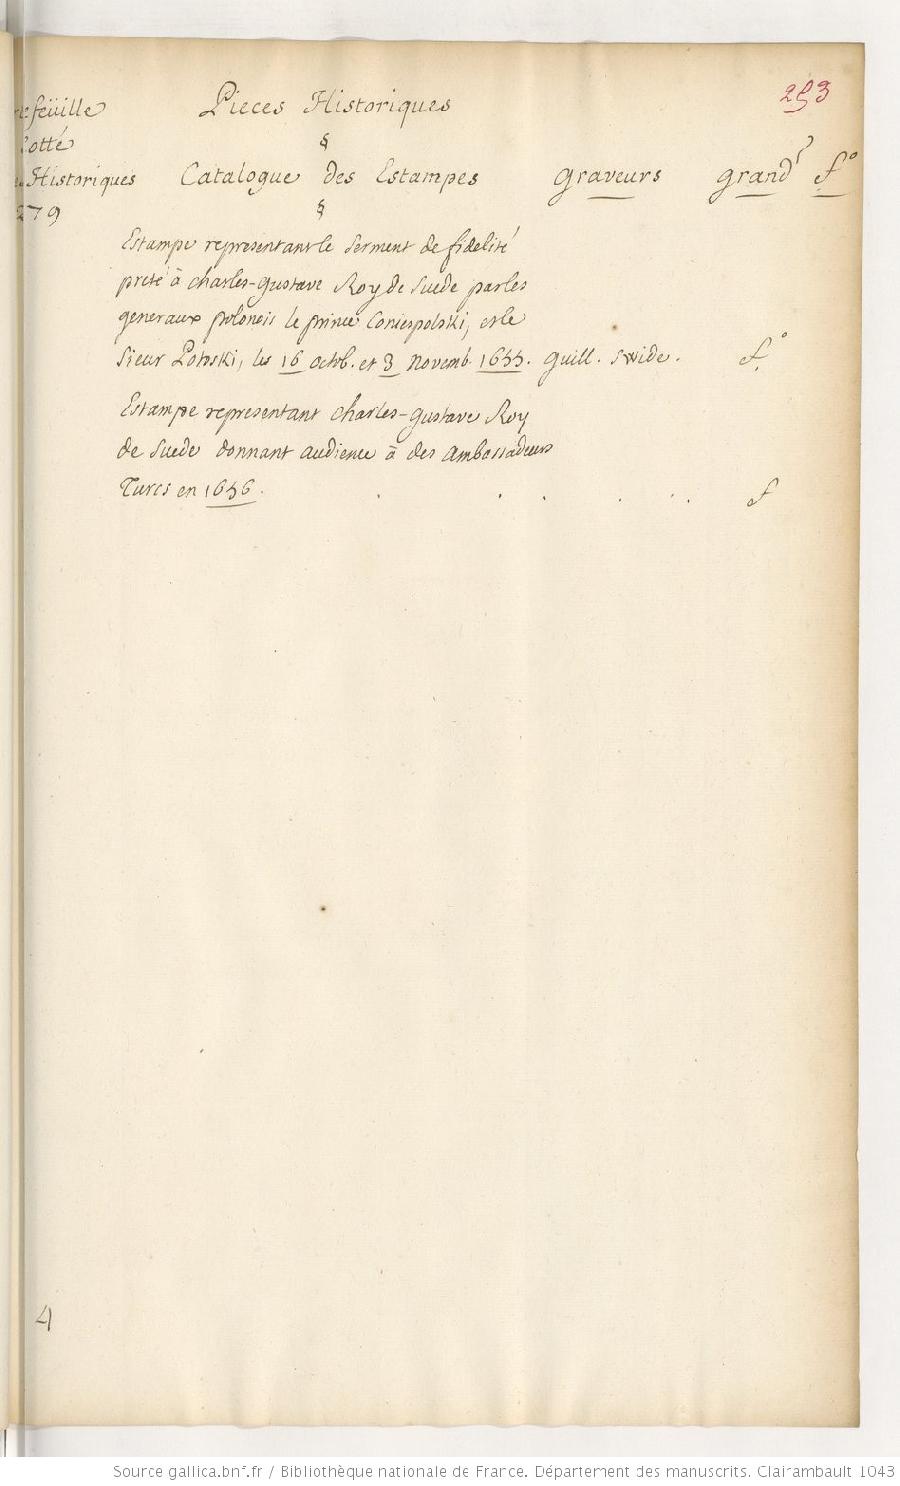 253
feüille Pieces Historiques
Cotté §
Historiques Catalogue des Estampes Graveurs grand.r f.º
279 §
Estampe representant le serment de fidelité
preté à Charles-Gustave Roy de Suede par les
generaux polonois le prince Coniespolski, et le
Sieur Potoski, les 16 octob. et 3 Novemb. 1655. Guill. Swide. f.º
Estampe representant Charles-Gustave Roy
de Suede donnant audience à des ambassadeurs
Turcs en 1656. . . . . . . f
4
Source gallica.bnf.fr / Bibliothèque nationale de France. Département des manuscrits. Clairambault 1043